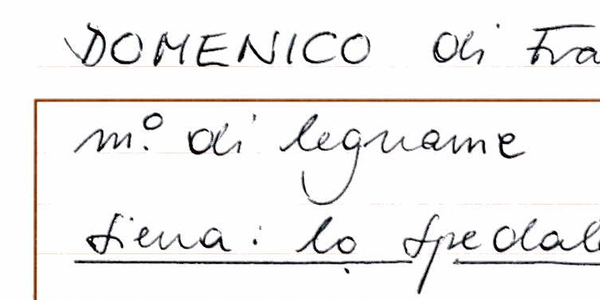 DOMENICO di Fra
m.º di legname
Siena: lo Spedal